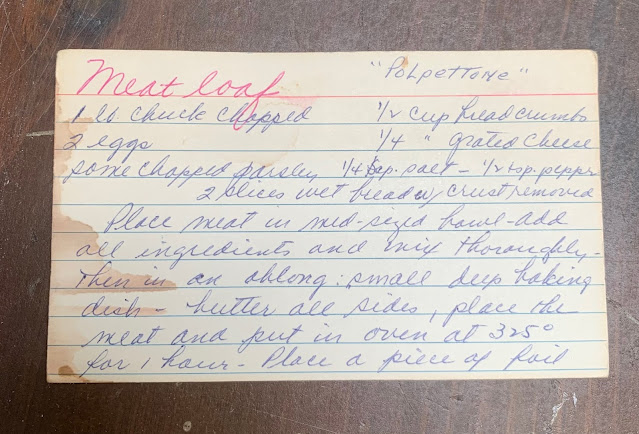 Meat loaf "Polpettone"
1 lb chuck chopped 1/2 cup breadcrumbs
2 eggs 1/4 " grated cheese
some chopped parsley 1/4 tsp. salt - 1/2 tsp. pepper
2 slices wet bread w/ crust removed
Place meat in med-sized bowl - add
all ingredients and mix thoroughly -
then in an oblong: small deep baking
dish - butter all sides, place the
meat and put in oven at 325°
for 1 hour - Place a piece of foil